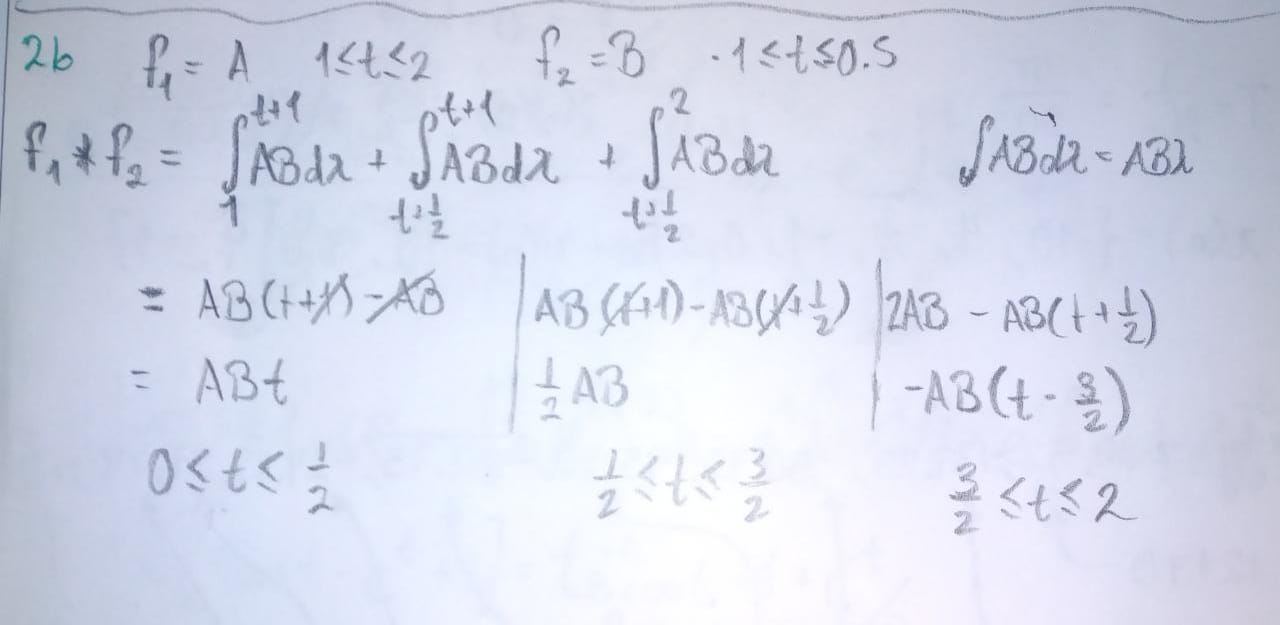 2b f₁ = A 1≤t≤2 f₂ = B -1≤t≤0.5
f₁ * f₂ = ∫₁^{t+1} ABdλ + ∫_{t+½}^{t+1} ABdλ + ∫_{t+½}^{2} ABdλ ∫ABdλ = ABλ
= AB(t+1) - AB | AB(t+1) - AB(t+½) | 2AB - AB(t+½)
= ABt | ½AB | -AB(t - 3/2)
0≤t≤½ ½≤t≤3/2 3/2≤t≤2